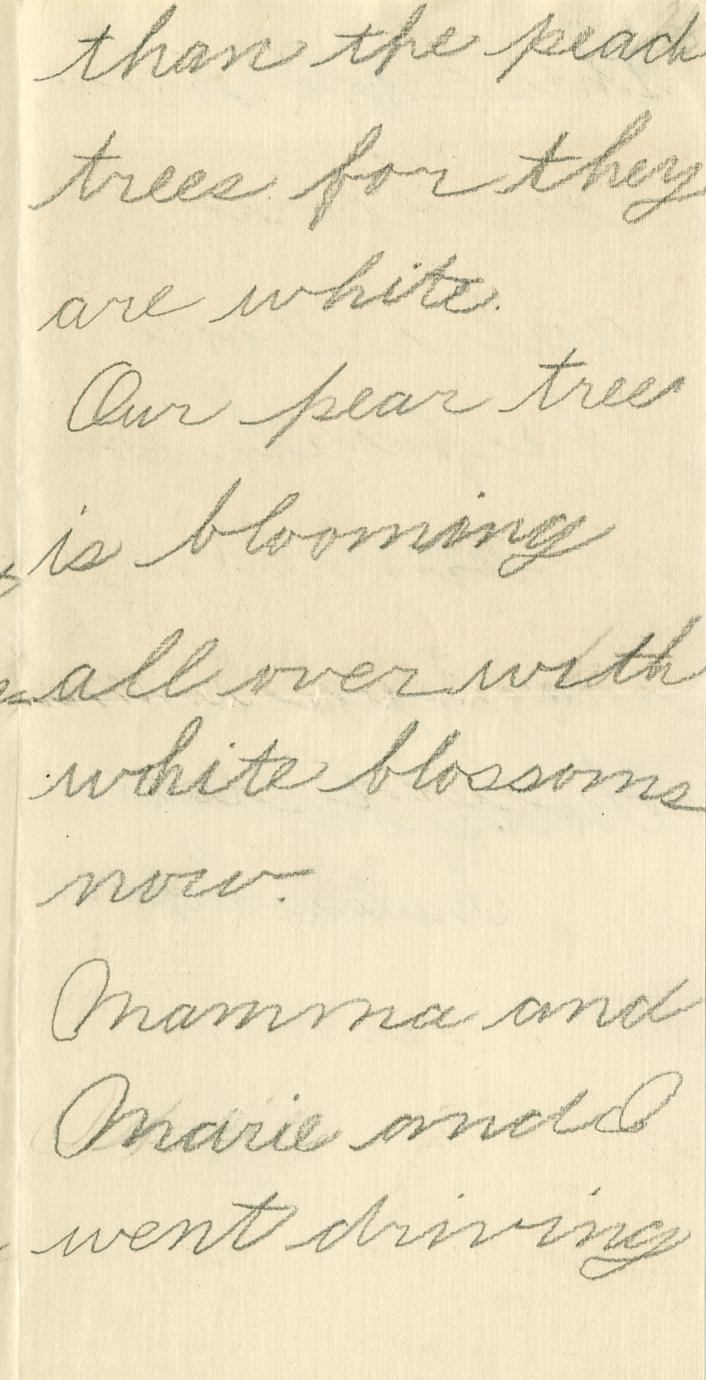 than the peach
trees for they
are white.
Our pear tree
is blooming
all over with
white blossoms
now.
Mamma and
Marie and I
went driving